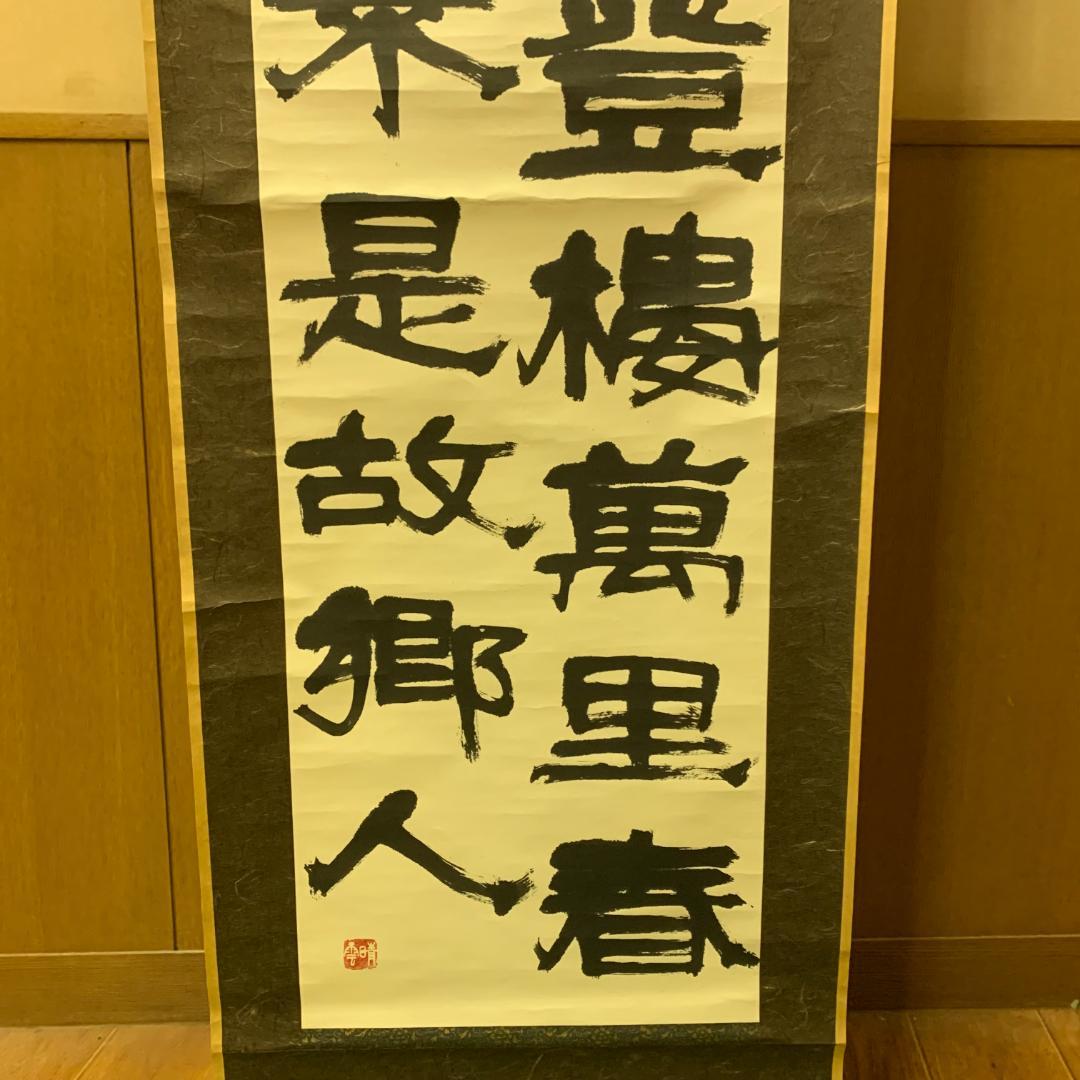 登樓萬里春
是故鄉人
晴雲